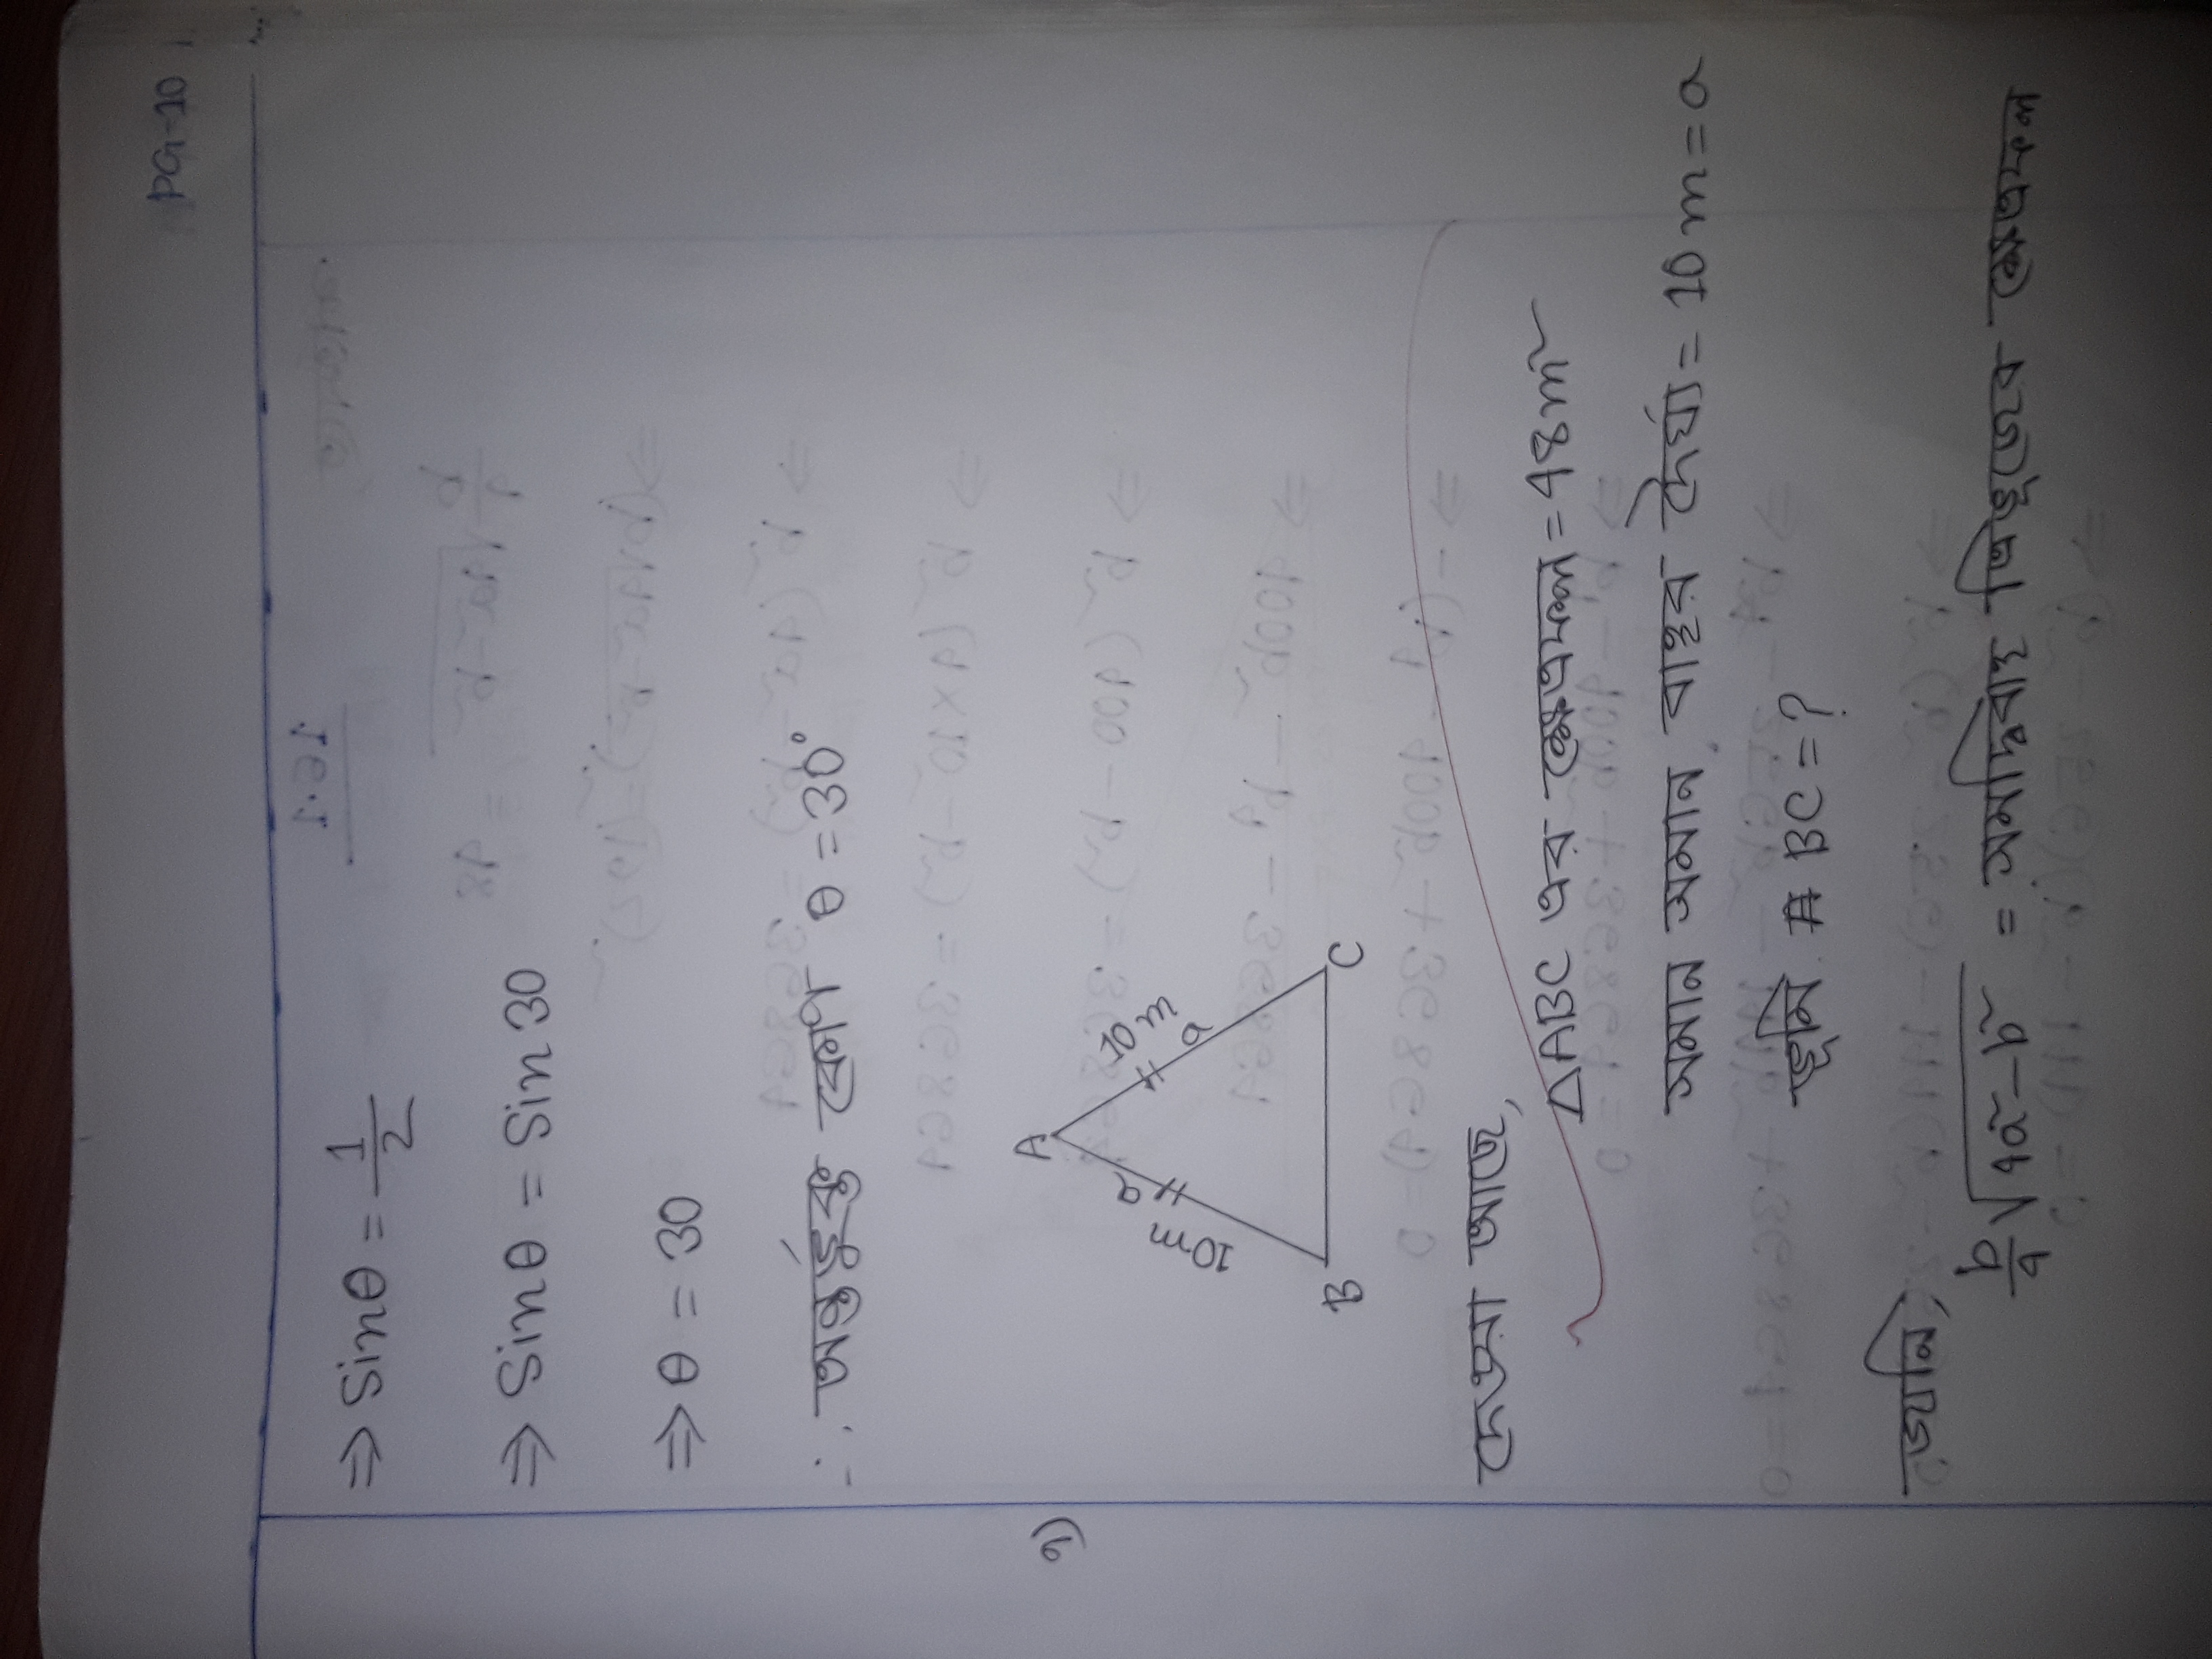 PG-10
⇒ Sinθ = 1/2
⇒ Sinθ = Sin 30
⇒ θ = 30
∴ অন্তর্ভুক্ত কোণ θ = 30°
৭)
A
10m a
10m a
B
C
দেওয়া আছে,
△ABC এর ক্ষেত্রফল = 48m²
সমান সমান বাহুর দৈর্ঘ্য = 10m = a
ভূমি BC = ?
জানি,
b/4 √(4a² - b²) = সমদ্বিবাহু ত্রিভুজের ক্ষেত্রফল